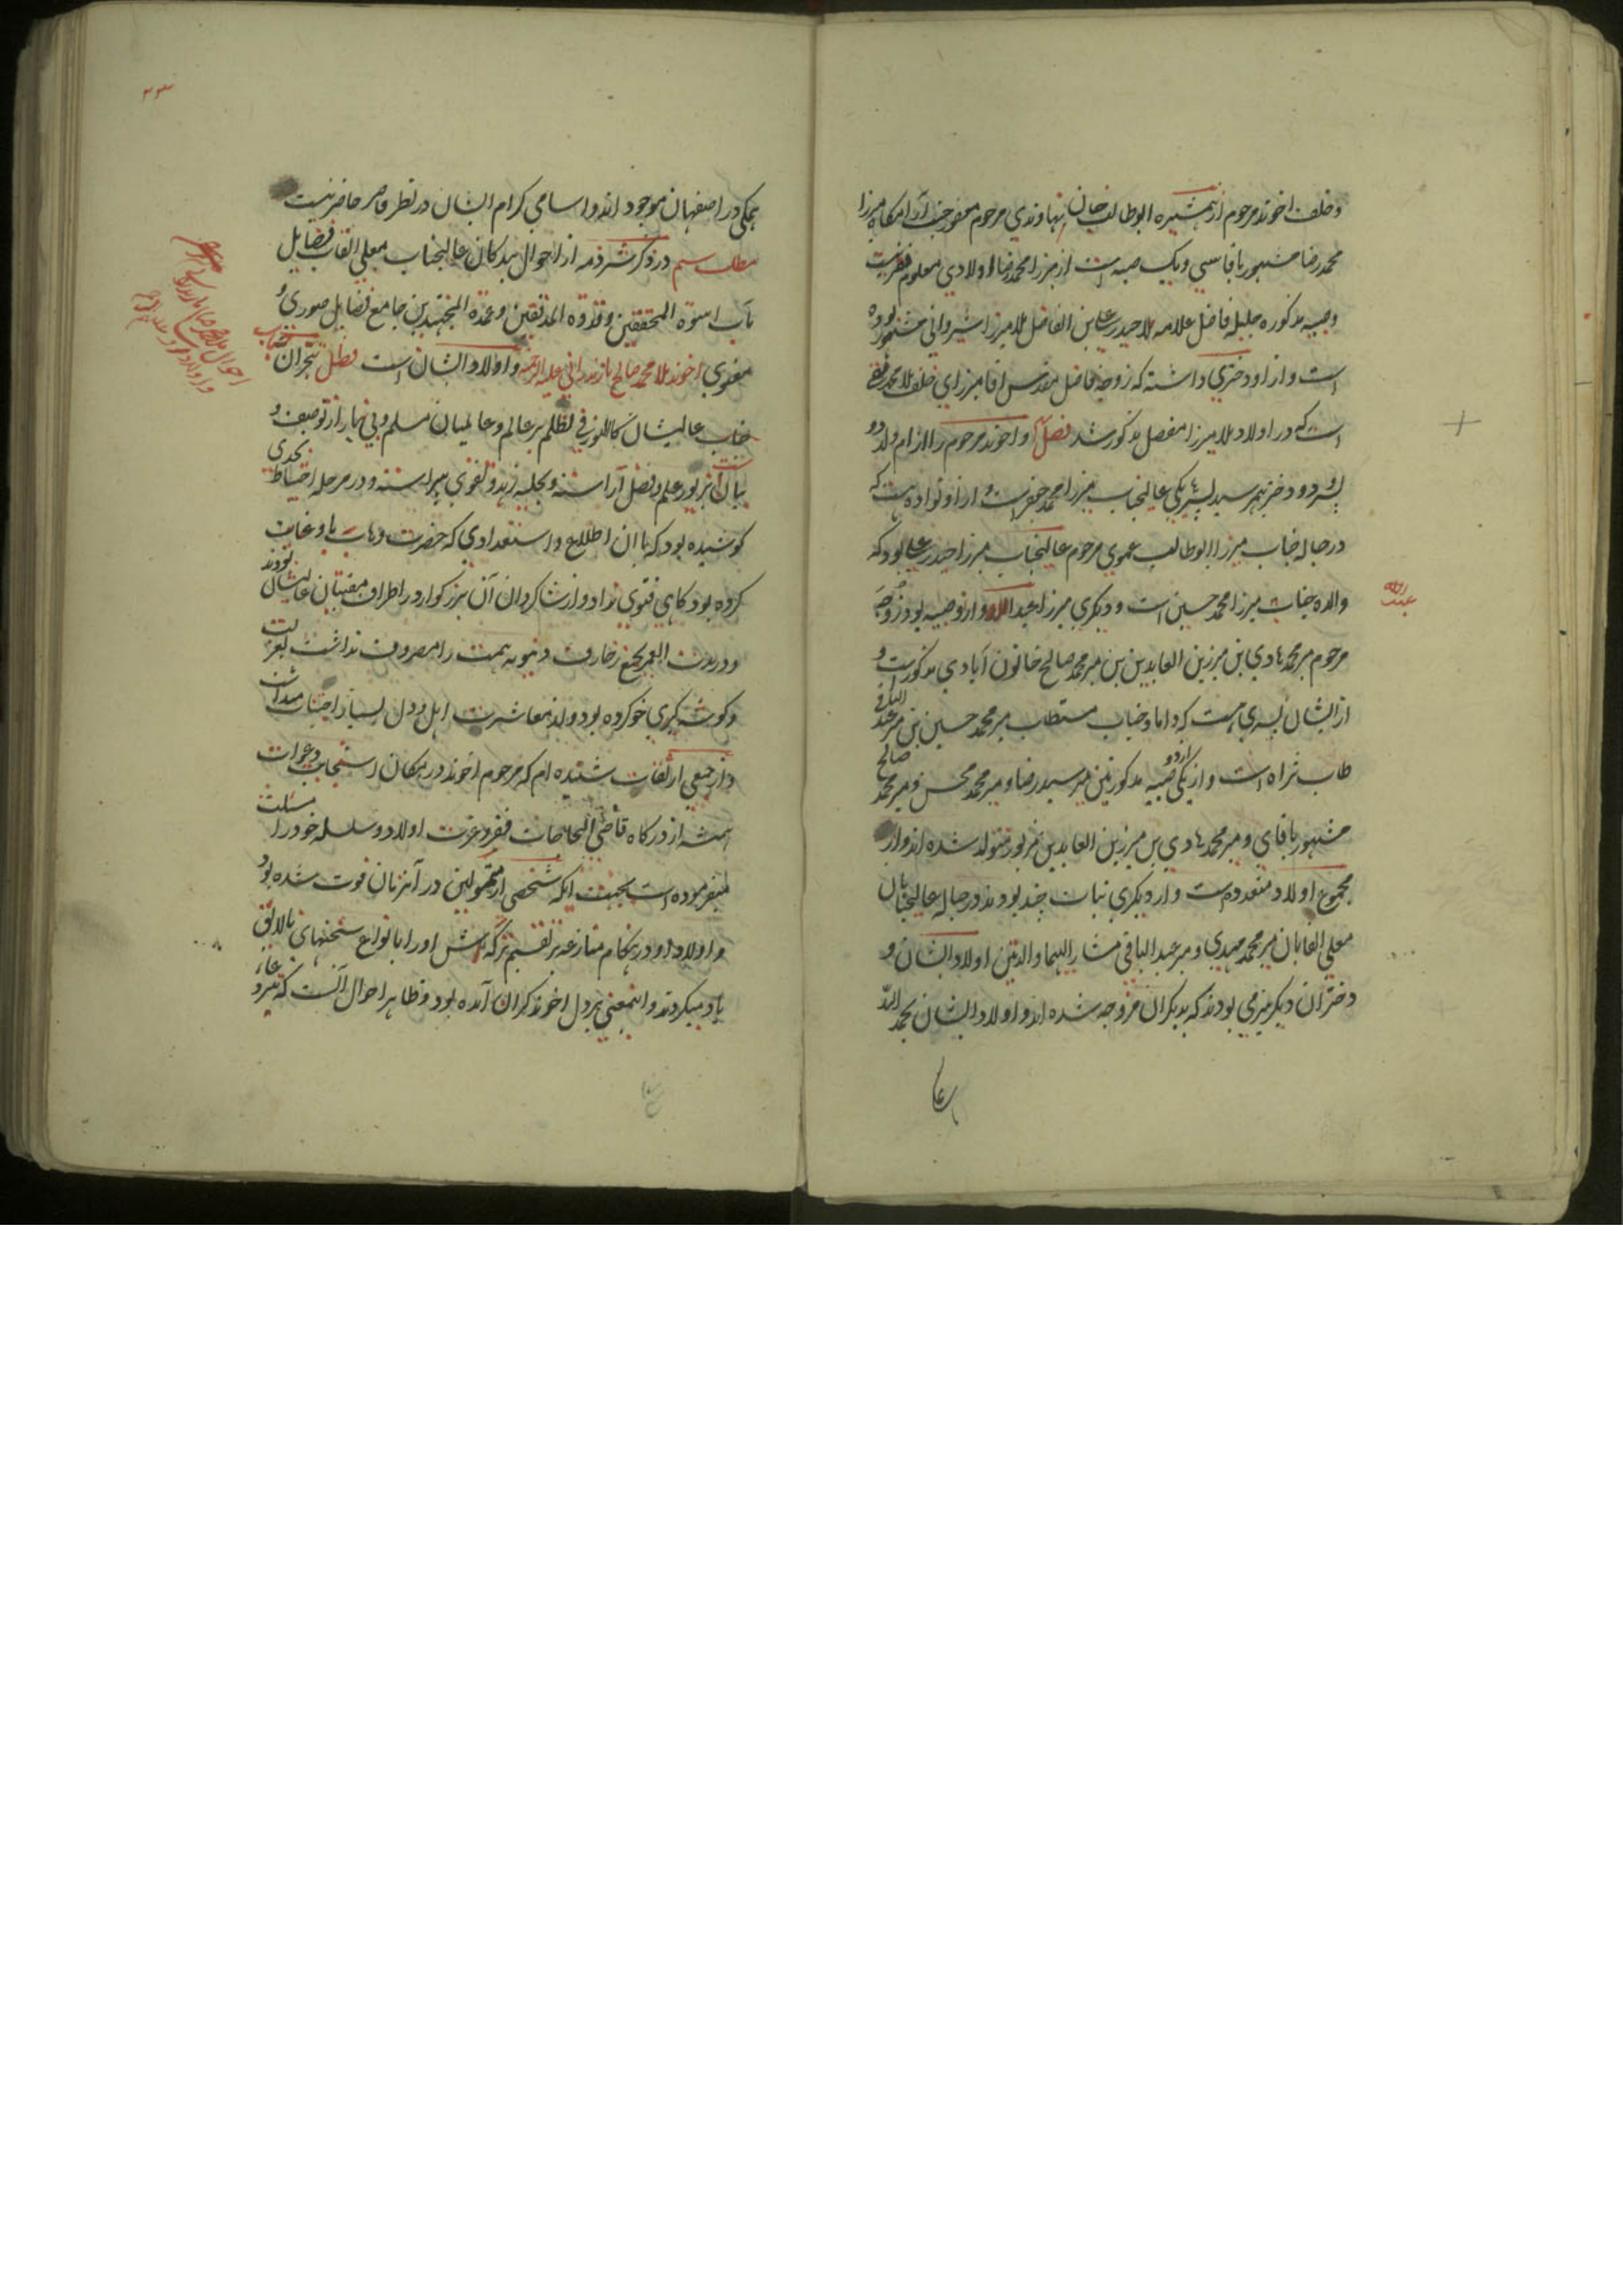 و خلف اخوند مرحوم از همشیره ابوطالب خان نهاوندی مرحوم مغفور جنت آرامگاه میرزا
محمد رضا مشهور باقاسی و یک صبیه است از میرزا محمد رضا اولادی معلوم فقیر نیست
و صبیه مذکوره حلیله فاضل علامه ملا حیدر علی بن الفاضل ملا میرزا شیروانی مشهور بوده
است و از او دختری داشته که زوجه فاضل مقدس اقا میرزای خلف ملا محمد تقی
است که در اولاد ملا میرزا مفصل مذکور شد فصل و اخوند مرحوم را از ام ولد دو
پسر و دو دختر بهم رسید پسر یکی عالیجناب میرزا محمد جعفر است و از او نواده هست که
در حباله جناب میرزا ابوطالب عموی مرحوم عالیجناب میرزا حیدر علی بود که
والده جناب میرزا محمد حسین است و دیگری میرزا عبد الله و از دو صبیه بود زوجه
عبد الله
مرحوم میر محمد هادی ابن میر زین العابدین بن میر محمد صالح خاتون آبادی مذکور است و
از ایشان پسری هست که داماد جناب مستطاب میر محمد حسین بن میر عبد الباقی
طاب ثراه است و از یکی از دو صبیه مذکورتین میر سید رضا و میر محمد محسن و میر محمد صالح
مشهور باقای و میر محمد هادی بن میر زین العابدین مزبور متولد شده اند و از
مجموع اولاد متعدده هست و از دیگری بنات چند بودند در حباله عالیجنابان
معلی القابان میر محمد مهدی و میر عبد الباقی مشار الیهما والدتین اولاد ایشان و
دختران دیگر نیز می بودند که بدیگران مزوجه شده اند و اولاد ایشان بحمد الله
همگی در اصفهان موجود اند و اسامی کرام ایشان در نظر قاصر حاضر نیست
مطلب سیم در ذکر شرذمه از احوال بندگان عالیجناب معلی القاب فضایل
مآب اسوة المحققین و قدوة المدققین و عمدة المجتهدین جامع فضایل صوری و
معنوی اخوند ملا محمد صالح مازندرانی علیه الرحمه و اولاد ایشان است فصل تبحر آن جناب
جناب عالیشان کالنور فی الظلم بر عالم و عالمیان مسلم و بی نیاز از توصیف و
بیان است بزیور علم و فضل آراسته و بحلیه زهد و تقوی پیراسته و در مرحله احتیاط بحدی
کوشیده بود که با ان اطلاع و استعدادی که حضرت وهاب باو عنایت
کرده بود گاهی فتوی نداد و از شاگردان آن بزرگوار در اطراف مفتیان عالیشان بودند
و در مدت العمر بجمع زخارف دنیویه همت را مصروف نداشت بعزلت
و گوشه گیری خو کرده بود و از معاشرت اهل دول بسیار اجتناب میداشت
و از جمعی از ثقات شنیده ام که مرحوم اخوند در مکان استجابت دعوات
همیشه از درگاه قاضی الحاجات فقر و عزت اولاد و سلسله خود را مسئلت
میفرموده است بجهت آنکه شخصی از متمولین در آنزمان فوت شده بود
و اولاد او در هنگام منازعه بر تقسیم ترکه اش او را بانواع سخنهای نالایق
یاد میکردند و اینمعنی بر دل اخوند گران آمده بود و ظاهر احوال آنست که تیر دعاء